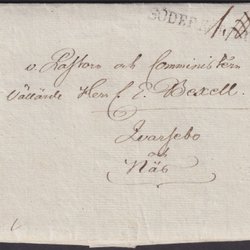 SÖDER
v. Pastorn och Comministern
Vällärde Herr C. E. Bexell.
Ivarsebo
och
Näs